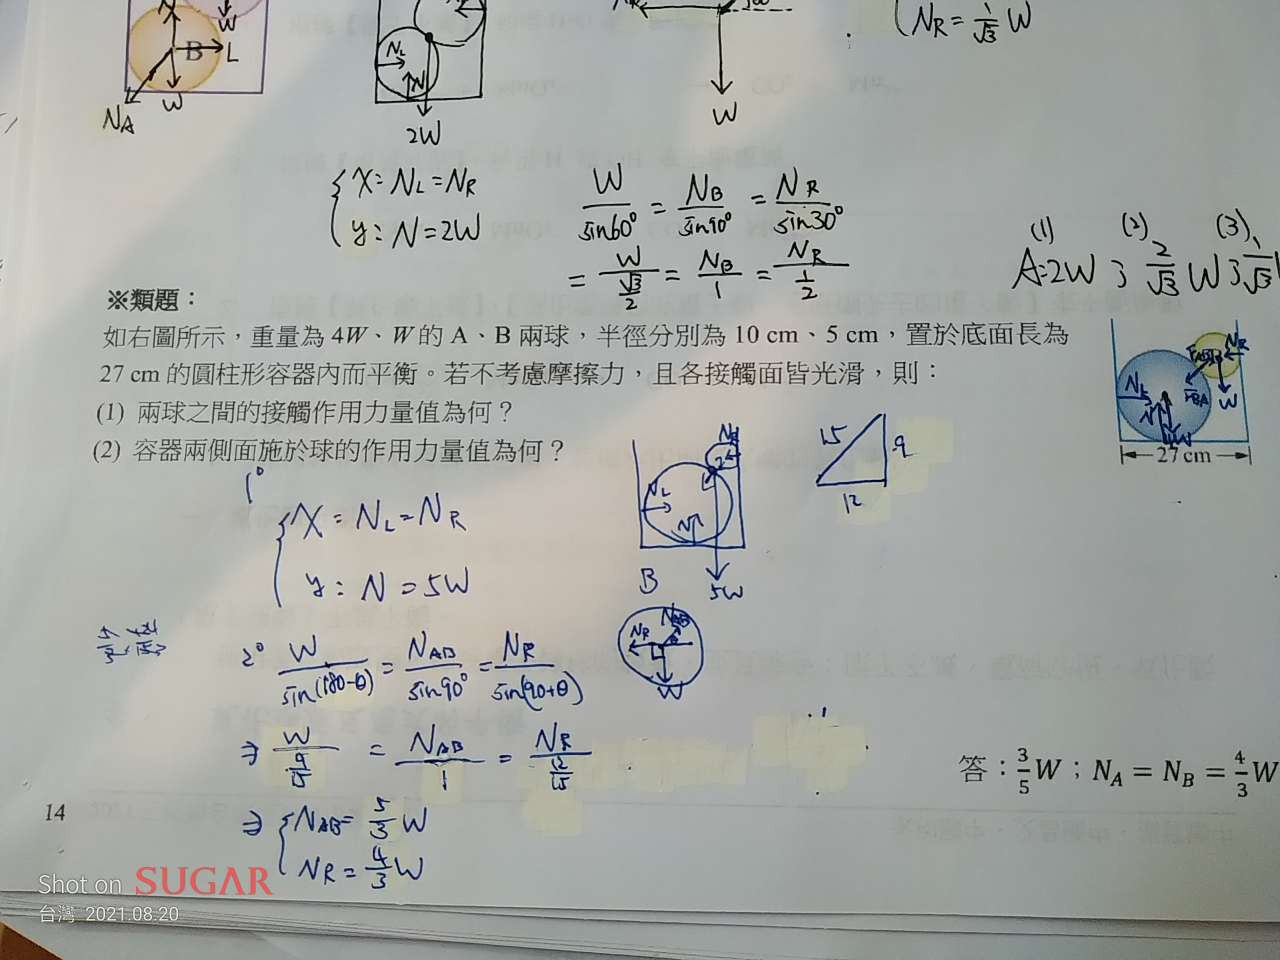 N_R = 1/√3 W
W
B
L
N_A
W
N_L
N
2W
W
{ X: N_L = N_R
y: N = 2W
W/sin60° = N_B/sin90° = N_R/sin30°
= W/(√3/2) = N_B/1 = N_R/(1/2)
(1) (2) (3)
A: 2W ; 2/√3 W ; 1/√3 W
※類題：
如右圖所示，重量為 4W、W 的 A、B 兩球，半徑分別為 10 cm、5 cm，置於底面長為
27 cm 的圓柱形容器內而平衡。若不考慮摩擦力，且各接觸面皆光滑，則：
(1) 兩球之間的接觸作用力量值為何？
(2) 容器兩側面施於球的作用力量值為何？
N_R
N_L
F_BA
W
N
27 cm
15
9
12
N_R
N_L
N
5W
1°
{ X = N_L = N_R
y: N = 5W
B
N_AB
N_R
θ
W
2° W/sin(180-θ) = N_AB/sin90° = N_R/sin(90+θ)
⇒ W/(9/15) = N_AB/1 = N_R/(12/15)
⇒ { N_AB = 5/3 W
N_R = 4/3 W
答：3/5 W；N_A = N_B = 4/3 W
14
Shot on SUGAR
台灣 2021.08.20